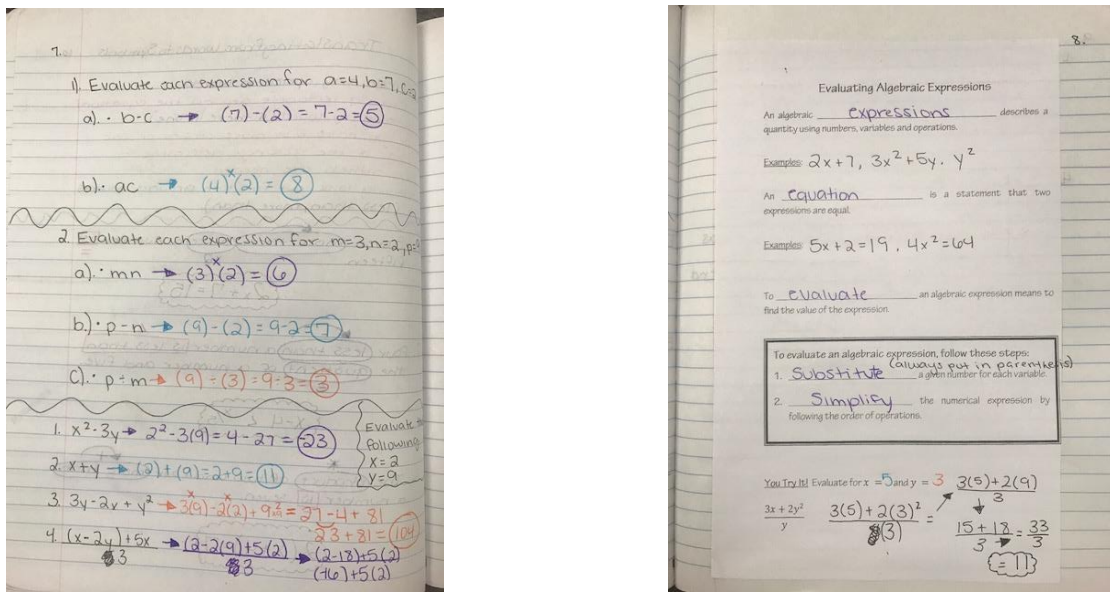 7.
1). Evaluate each expression for a=4, b=7, c=2
a). • b-c → (7)-(2) = 7-2=5
b). • ac → (4)ˣ(2) = 8
2. Evaluate each expression for m=3, n=2, p=
a). • mn → (3)ˣ(2) = 6
b.) • p-n → (9)-(2) = 9-2=7
c). • p÷m → (9) ÷ (3) = 9÷3=3
1. x²-3y → 2²-3(9) = 4-27 = -23
Evaluate
following
x=2
y=9
2. x+y → (2)+(9)=2+9=11
3. 3y-2x + y² → 3ˣ(9)-2ˣ(2)+9² = 27-4+81
23+81=104
4. (x-2y)+5x → (2-2(9)+5(2) → (2-18)+5(2)
3 3 (-16)+5(2)
8.
Evaluating Algebraic Expressions
An algebraic expressions describes a
quantity using numbers, variables and operations.
Examples: 2x+7, 3x²+5y. y²
An equation is a statement that two
expressions are equal.
Examples: 5x+2=19, 4x²=64
To evaluate an algebraic expression means to
find the value of the expression.
To evaluate an algebraic expression, follow these steps:
(always put in parenthesis)
1. Substitute a given number for each variable.
2. Simplify the numerical expression by
following the order of operations.
You Try It! Evaluate for x = 5 and y = 3
3x + 2y²
y
3(5)+2(3)²
(3)
=
3(5)+2(9)
3
15+18
3
= 33
3
= 11